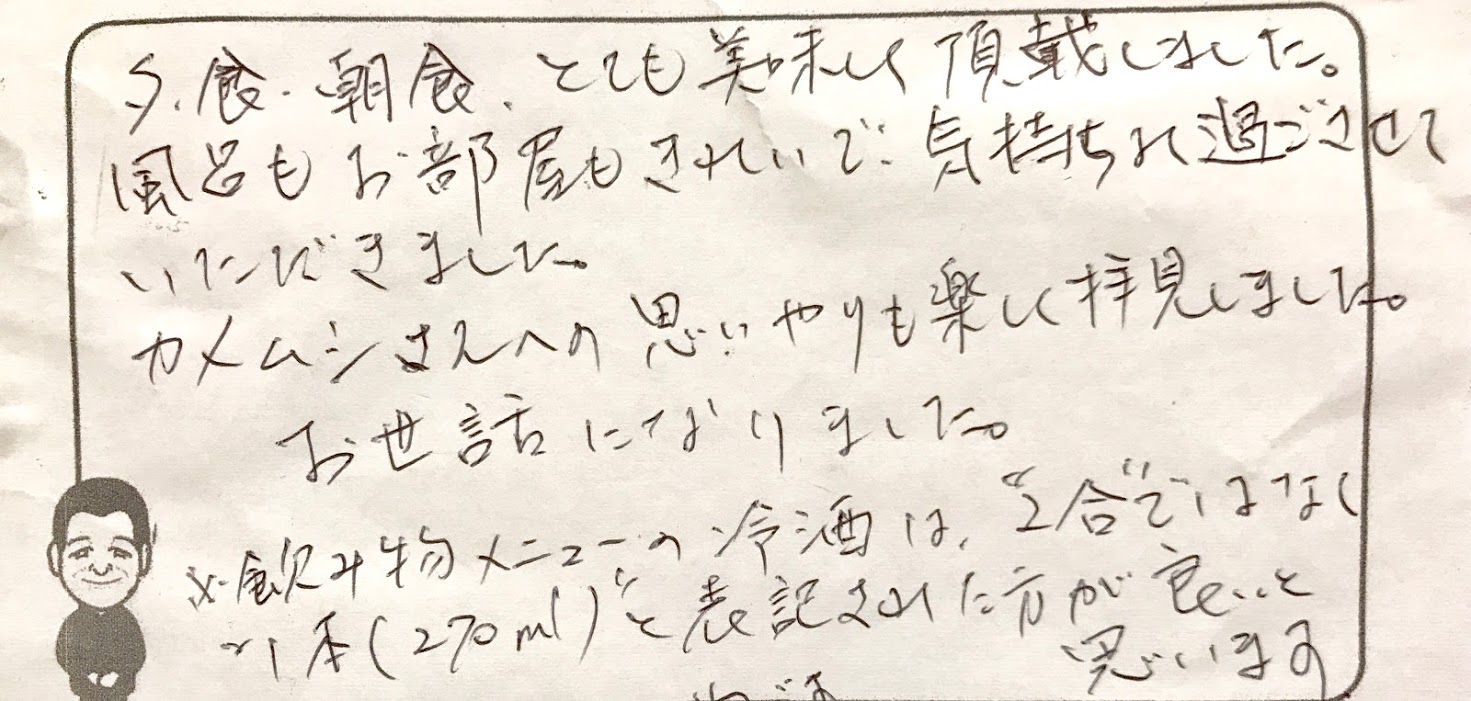 夕食・朝食、とても美味しく頂戴しました。
風呂もお部屋もきれいで、気持ちよく過ごさせて
いただきました。
カメムシさんへの思いやりも楽しく拝見しました。
お世話になりました。
※飲み物メニューの冷酒は、“2合”ではなく
“1本(270ml)”と表記された方が良いと
思います